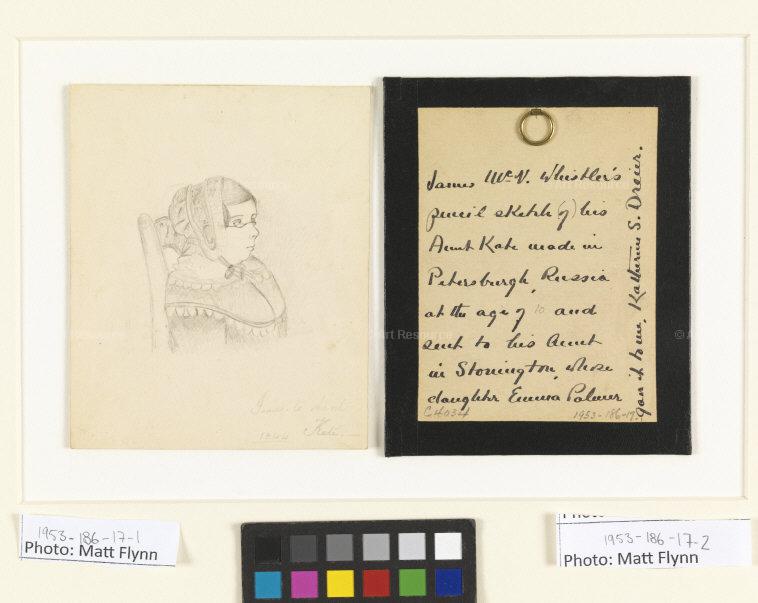 to Aunt
1844 Kate.
James McN. Whistler's
pencil sketch (of) his
Aunt Kate made in
Petersburgh, Russia
at the age of 10 and
sent to his Aunt
in Stonington, whose
daughter Emma Palmer
gave it to me, Katherine S. Dreier.
C4034
1953-186-17
© Art Resource
1953-186-17-1
Photo: Matt Flynn
1953-186-17-2
Photo: Matt Flynn